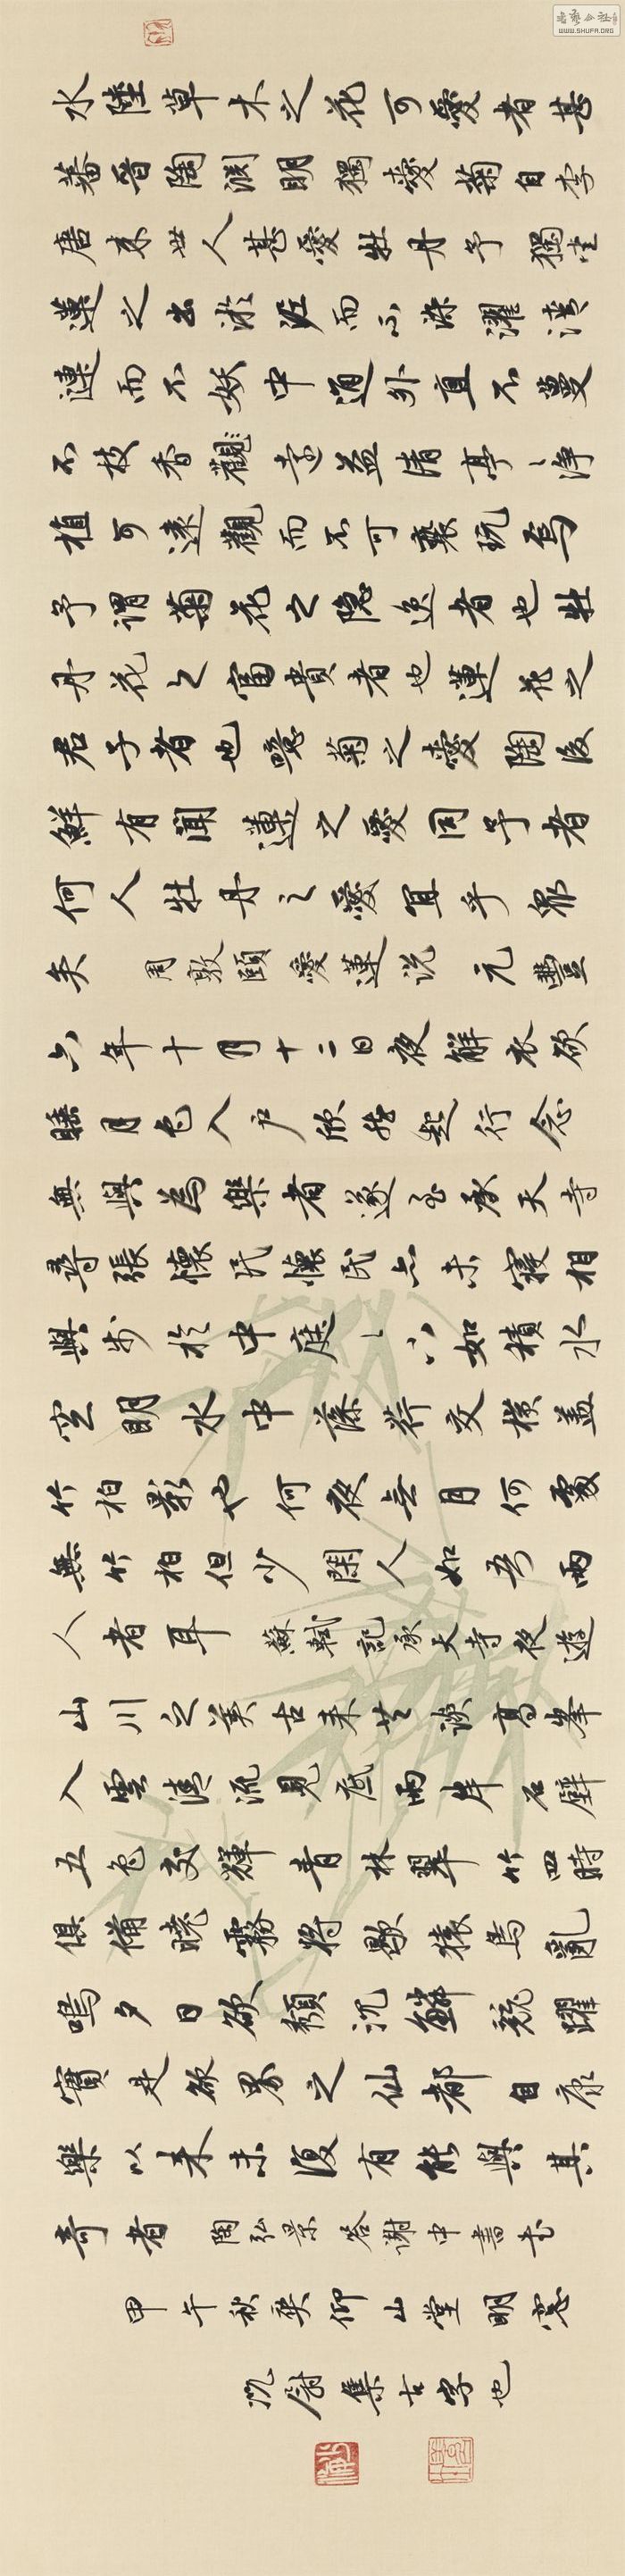 水陸草木之花可愛者甚
蕃晉陶淵明獨愛菊自李
唐來世人甚愛牡丹予獨愛
蓮之出淤泥而不染濯清
漣而不妖中通外直不蔓
不枝香觀遠益清亭〻淨
植可遠觀而不可褻玩焉
予謂菊花之隱逸者也牡
丹花之富貴者也蓮花之
君子者也噫菊之愛陶後
鮮有聞蓮之愛同予者
何人牡丹之愛宜乎眾
矣 周敦頤愛蓮說 元豐
六年十月十二日夜解衣欲
睡月色入戶欣然起行念
無與為樂者遂至承天寺
尋張懷民懷民亦未寢相
與步於中庭〻下如積水
空明水中藻荇交橫蓋
竹柏影也何夜無月何處
無竹柏但少閑人如吾兩
人者耳 蘇軾記承天寺夜遊
山川之美古來共談高峯
入雲清流見底兩岸石壁
五色交輝青林翠竹四時
俱備曉霧將歇猿鳥亂
鳴夕日欲頹沉鱗競躍
實是欲界之仙都自康
樂以來未復有能與其
奇者 陶弘景答謝中書書
甲午秋 仰山堂明窓
尉集古字也
WWW.SHUFA.ORG